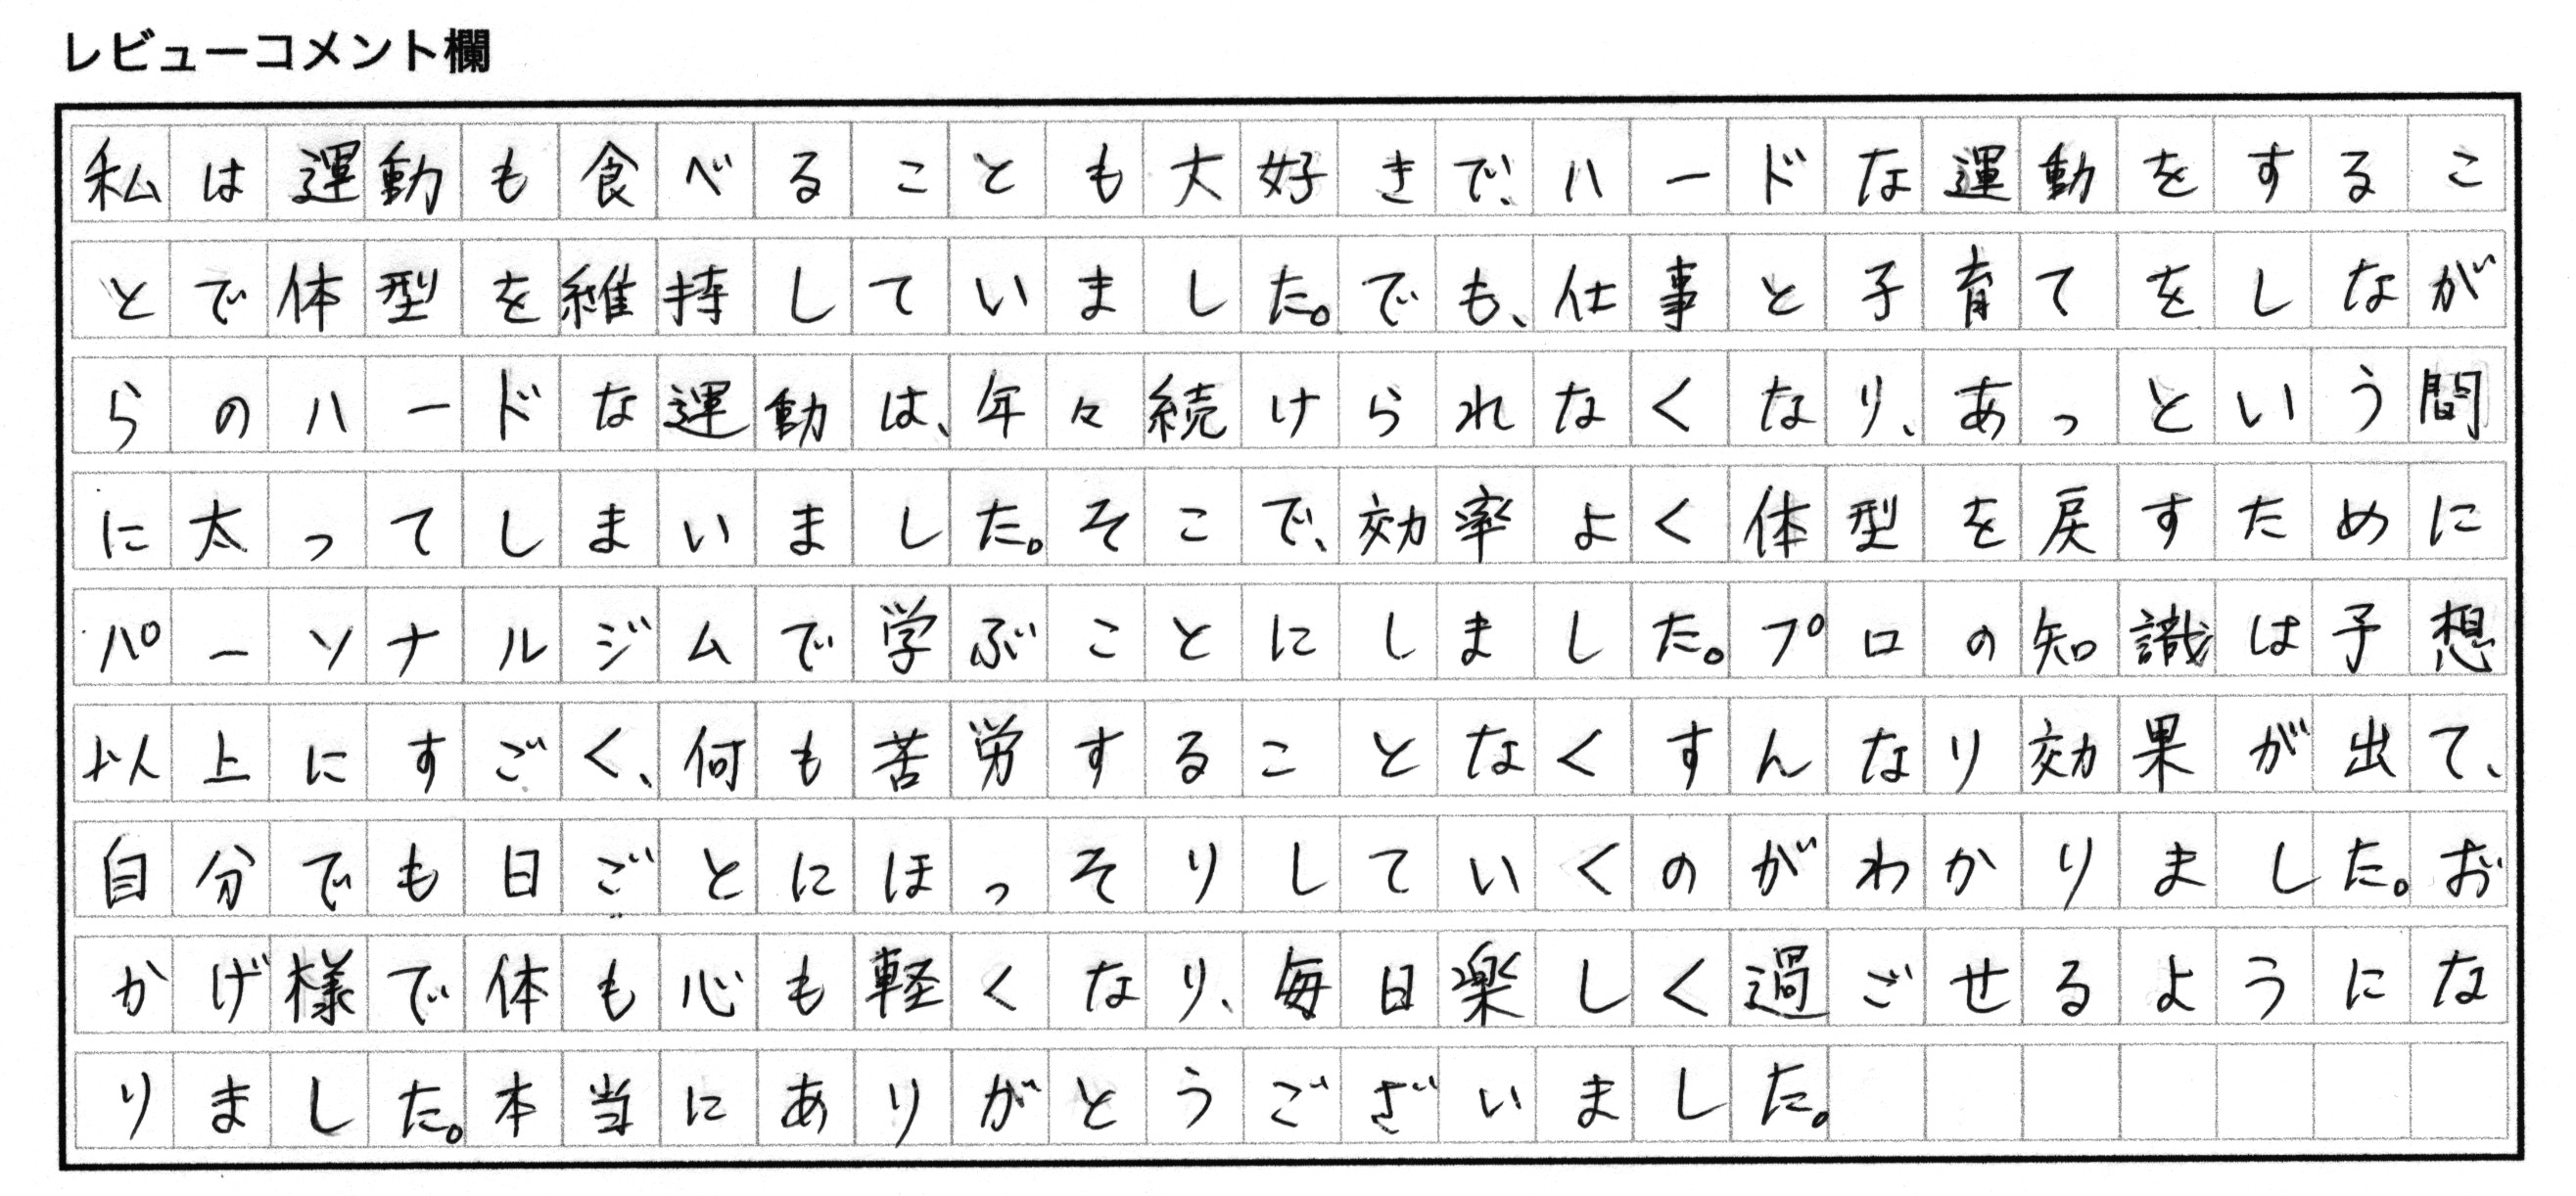 レビューコメント欄
私は運動も食べることも大好きで、ハードな運動をするこ
とで体型を維持していました。でも、仕事と子育てをしなが
らのハードな運動は、年々続けられなくなり、あっという間
に太ってしまいました。そこで、効率よく体型を戻すために
パーソナルジムで学ぶことにしました。プロの知識は予想
以上にすごく、何も苦労することなくすんなり効果が出て、
自分でも日ごとにほっそりしていくのがわかりました。お
かげ様で体も心も軽くなり、毎日楽しく過ごせるようにな
りました。本当にありがとうございました。